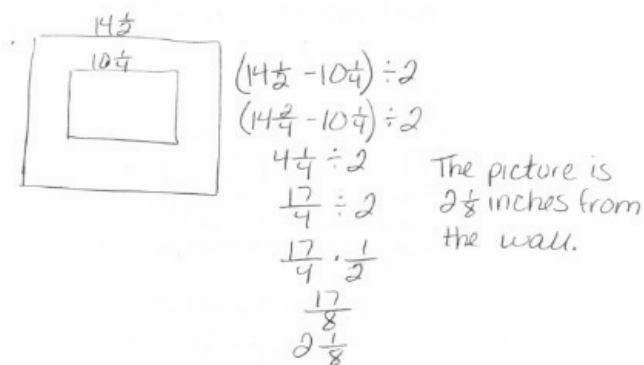 14 1/2
10 1/4
(14 1/2 - 10 1/4) ÷ 2
(14 2/4 - 10 1/4) ÷ 2
4 1/4 ÷ 2
17/4 ÷ 2
17/4 · 1/2
17/8
2 1/8
The picture is
2 1/8 inches from
the wall.